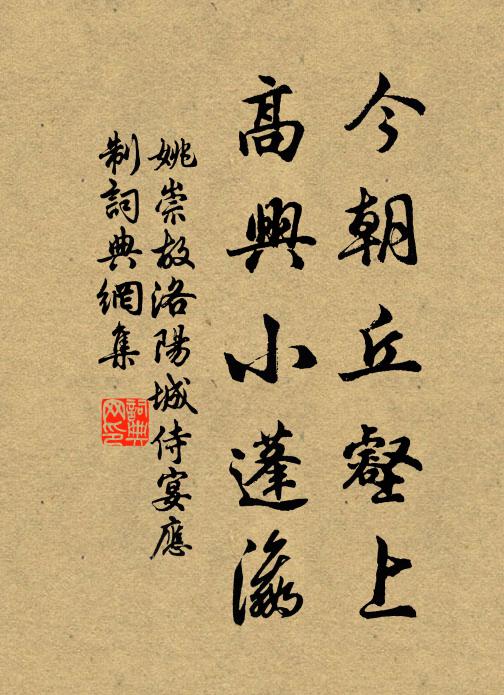 今朝丘壑上
高興小蓬瀛
姚崇故洛陽城侍宴應
制詞典網集
詞典
网印